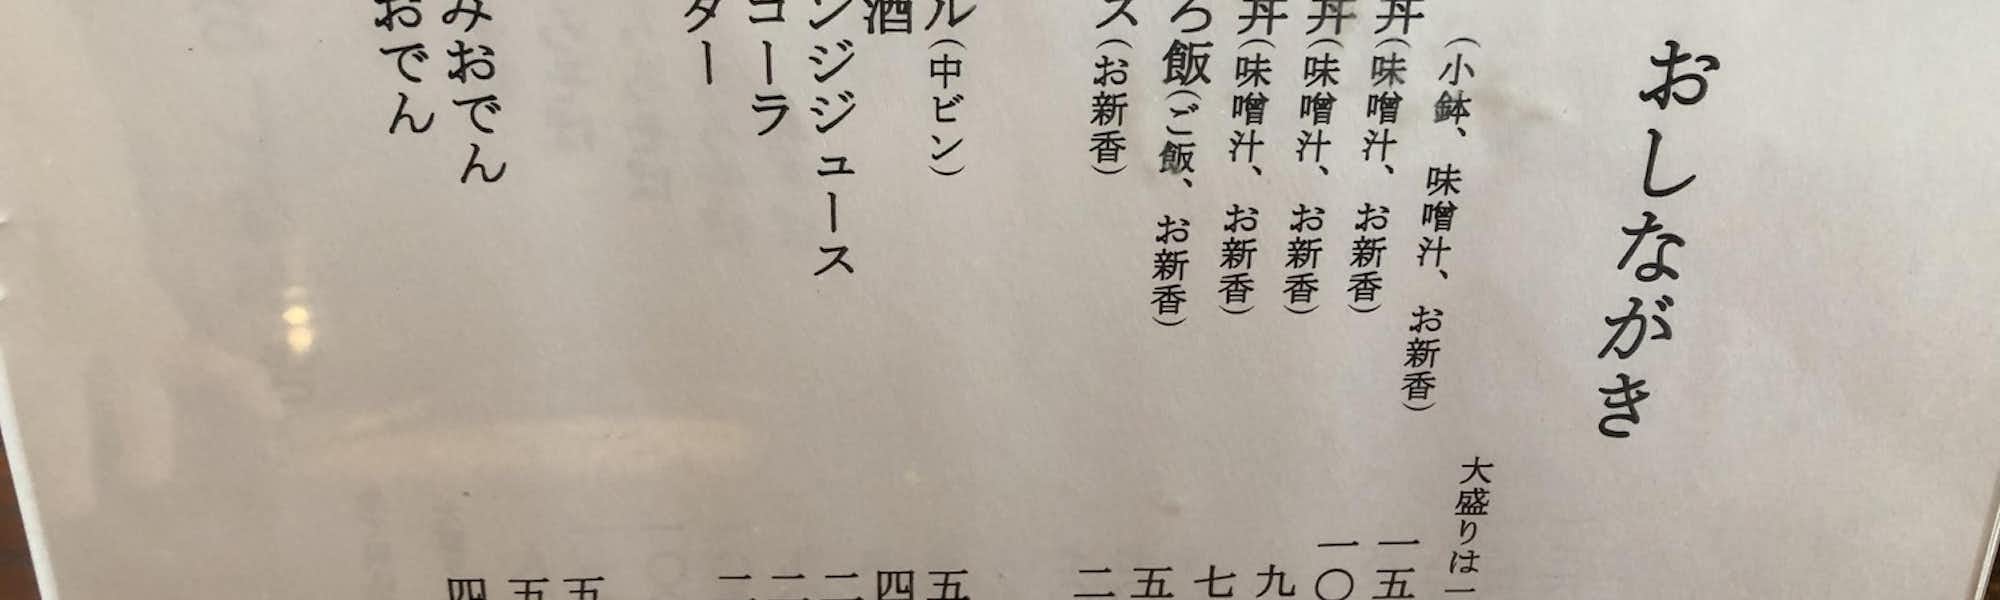 おしながき
大盛りは一
(小鉢、味噌汁、お新香)
丼(味噌汁、お新香) 一五
丼(味噌汁、お新香) 一〇
丼(味噌汁、お新香) 九
ろ飯(ご飯、お新香) 七
ス(お新香) 五
二
ル(中ビン) 五
酒 四
ンジジュース 二
コーラ 二
ター 二
五
五
みおでん 四
おでん